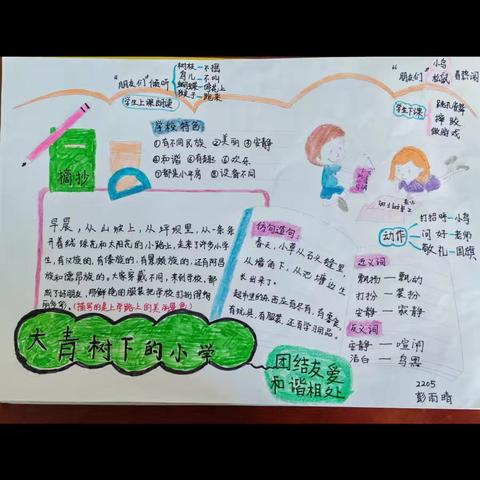 "朋友们"倾听
树枝—不摇
鸟儿—不叫
蝴蝶—停花上
猴子—跑来
学生上课朗读
"朋友们"
小鸟
松鼠
看热闹
学生下课
跳孔雀舞
摔跤
做游戏
学校特色
①有不同民族 ②美丽 ③安静
④和谐 ⑤有趣 ⑥欢乐
⑦都是小平房 ⑧设备不同
摘抄
早晨,从山坡上,从坪坝里,从一条条
开着绒球花和太阳花的小路上,走来了许多小学
生,有汉族的,有傣族的,有景颇族的,还有阿昌
族和德昂族的。大家穿戴不同,来到学校,都
成了好朋友。那鲜艳的服装把学校打扮得绚
丽多彩。(描写的是上学路上的美丽景色)
仿句造句:
春天,小草从石头缝里,
从墙角下,从池塘边生
长出来了。
有玩具,有服装,还有学习用品。
动作
打招呼—小鸟
问好—老师
敬礼—国旗
近义词
飘扬—飘动
打扮—装扮
安静—寂静
反义词
安静—喧闹
洁白—乌黑
大青树下的小学
团结友爱
和谐相处
2205
彭雨晴